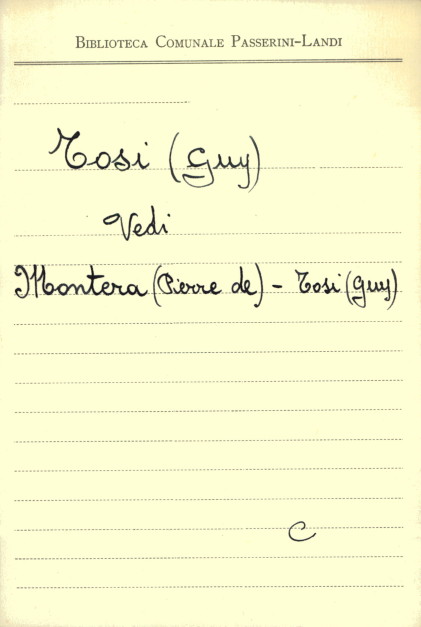 Biblioteca Comunale Passerini-Landi
Tosi (Guy)
Vedi
Montera (Pierre de) - Tosi (Guy)
C